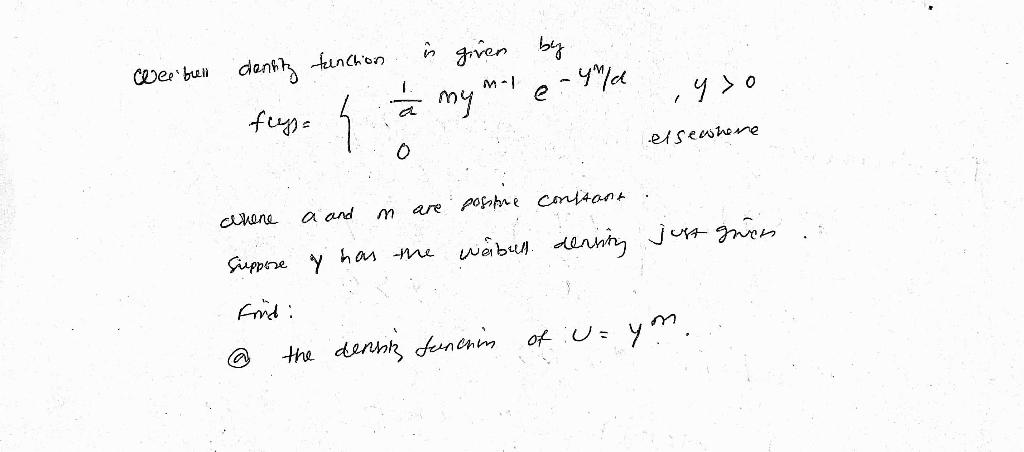 Weibull density function is given by
f(y) = { 1/a my^m-1 e^-y^m/a , y > 0
0 elsewhere
where a and m are positive constant.
Suppose y has the weibull density just given.
Find:
ⓐ the density function of U = y^m.